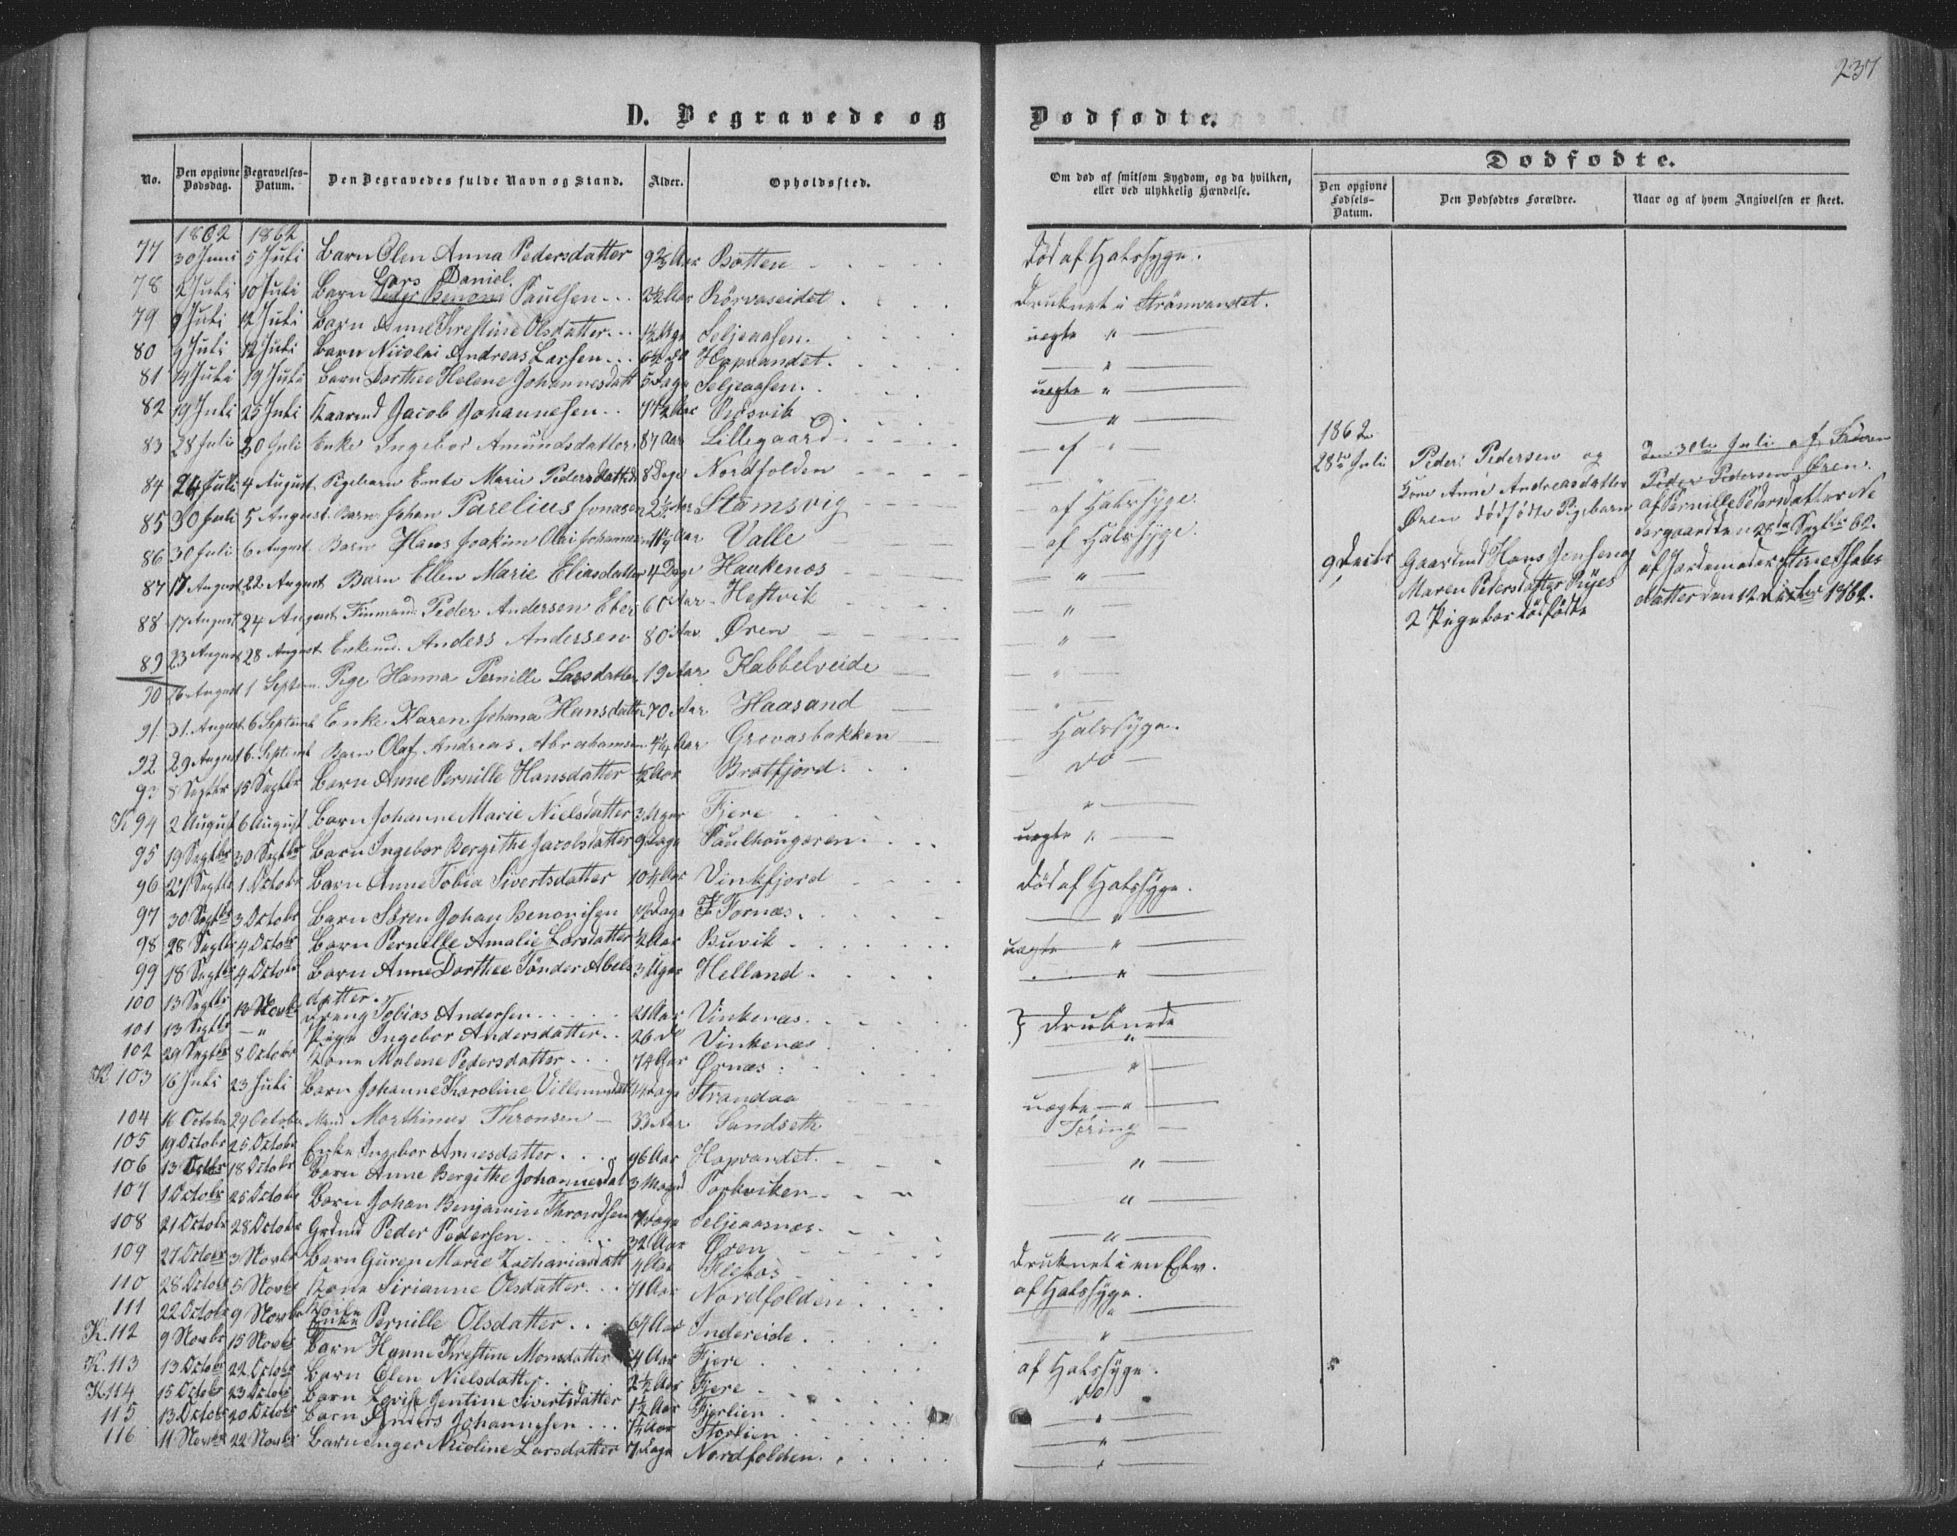 237
D. Begravede og Dødfødte.
No. Den opgivne Dødsdag. Begravelses-Datum. Den Begravedes fulde Navn og Stand. Alder. Opholdssted. Om død af smitsom Sygdom, og da hvilken, eller ved ulykkelig Hændelse.
Dødfødte.
Den opgivne Fødsels-Datum. Den Dødfødtes Forældre. Naar og af hvem Angivelsen er skeet.
1862 1862
77 30 Juni 5 Juli Barn Elen Anna Pedersdatter Aar Botten Død af Halssyge.
Lars Daniel.
78 2 Juli 10 Juli Barn Peder Benoni Paulsen 2½ Aar Rörvaseidet. Druknet i Strömvandet.
79 9 Juli 12 Juli Barn Anne Krestine Olsdatter Seljeaasen. uegte "
80 Juli 12 Juli Barn Nicolai Andreas Larsen Hopvandet. "
81 14 Juli 19 Juli Barn Dorthee Helene Johannesdatt 5 Dage Seljeaasen. uegte "
82 19 Juli 25 Juli Kaarmd Jacob Johannesen Aar Røsvik "
83 28 Juli 30 Juli Enke Ingebor Amundsdatter 87 Aar Lillegaard
84 24 Juli 4 August Pigebarn Ente Marie Pedersdatter 8 Dage Nordfolden "
85 30 Juli 5 August Barn Johan Parelius Jonasen 2½ Aar Stamsvig af Halssyge
86 30 Juli 6 August Barn Hans Joakim Olai Johannes Aar Valle af Halssyge.
87 17 August 22 August Barn Ellen Marie Eliasdatter 4 Dage Haukenæs "
88 17 August 24 August Finmand Peder Andersen Eber 60 Aar Heftvik "
89 23 August 28 August Enkemd. Anders Andersen 80 Aar Øren "
90 26 August 1 Septem. Pige Hanna Pernille Larsdatter 19 Aar Kabbelveide "
91 31 August 6 Septemb Enke Karen Johana Hansdatter 70 Aar Haasand "
92 29 August 6 Septemb Barn Olaf Andreas Abrahamsen 4¼ Aar Grovasbakken Halssyge.
93 8 Septbr 15 Septbr Barn Anne Pernille Hansdatter ½ Aar Brotfjord. do
K. 94 2 August 6 August Barn Johanne Marie Nielsdatter 3 Uger Fjere "
95 19 Septbr 30 Septbr Barn Ingebor Bergithe Jacobsdatter 9 Dage Paulhougeren. uegte "
96 21 Septbr 1 Octobr Barn Anne Tobia Sivertsdatter 10¼ Aar Vinkfjord Død af Halssyge.
97 30 Septbr 3 Octobr Barn Sören Johan Benonisen Dage Fornæs. "
98 28 Septbr 4 Octobr Barn Pernille Amalie Larsdatter ½ Aar Buvik uegte "
99 18 Septbr 4 Octobr Barn Anne Dorthee Tönder Abels datter. 3 Uger Helland. "
100 13 Septbr 13 Novbr Dreng Tobias Andersen 21 Aar Vinkenæs. Druknede
101 13 Septbr " Pige Ingebor Andersdatter 26 do Vinkenæs "
102 29 Septbr 8 Octobr Kone Malene Pedersdatter 74 Aar Ørnæs "
K 103 16 Juli 23 Juli Barn Johanne Karoline Villumsdatt Dage Strandaa uegte "
104 16 October 29 October Mand Morthinus Thronsen 33 Aar Sandseth Tæring
105 19 Octobr 25 Octobr Enke Ingebor Arnesdatter 96 Aar Hopvandet. "
106 13 Octbr 18 Octobr Barn Anne Bergithe Johannesdat 3 Maand Torkviken "
107 1 Octobr 25 Octobr Barn Johan Benjamin Throndsen Dage Seljeaasnæs. "
108 21 Octobr 28 Octobr Grdmd Peder Pedersen 32 Aar Øren Druknet i en Elv.
109 27 Octobr 3 Novbr Barn Guren Marie Zachariasdatt 4 Aar af Halssyge.
110 28 Octobr 5 Novbr Kone Sirianne Olsdatter 71 Aar Nordfolden "
111 22 Octobr 9 Novbr Enke Pernille Olsdatter 69 Aar Indereide. "
K. 112 9 Novbr 15 Novbr Barn Hanne Krestine Monsdatter 4 Aar Fjere af Halssyge.
K. 113 13 Octobr 22 Octobr Barn Elen Nielsdatter 2½ Aar Fjere do
K. 114 15 Octobr 23 Octobr Barn Lovise Jentine Sivertsdatter 1½ Aar Fjerlien "
115 13 Octobr 20 Octobr Barn Anders Johannesen Aar Storlien "
116 11 Novbr 22 Novbr Barn Inger Nicoline Larsdatter 7 Dage Nordfolden. "
1862
28de Juli Peder Pedersen og
Kone Anne Andreasdatter
Øren dødfødte Pigebarn
Den 30te Juli af Faderen
Peder Pedersen Øren.
af Pernille Pedersdatter Ne
dergaard den 28de Septbr 62.
9 Decbr Gaardmd Hans Jensen og
Maren Petersdatter Røyes
2 Pigebør dødfødte
af Jordemoder Stene Thobi
datter den 12 Decbr 1862.